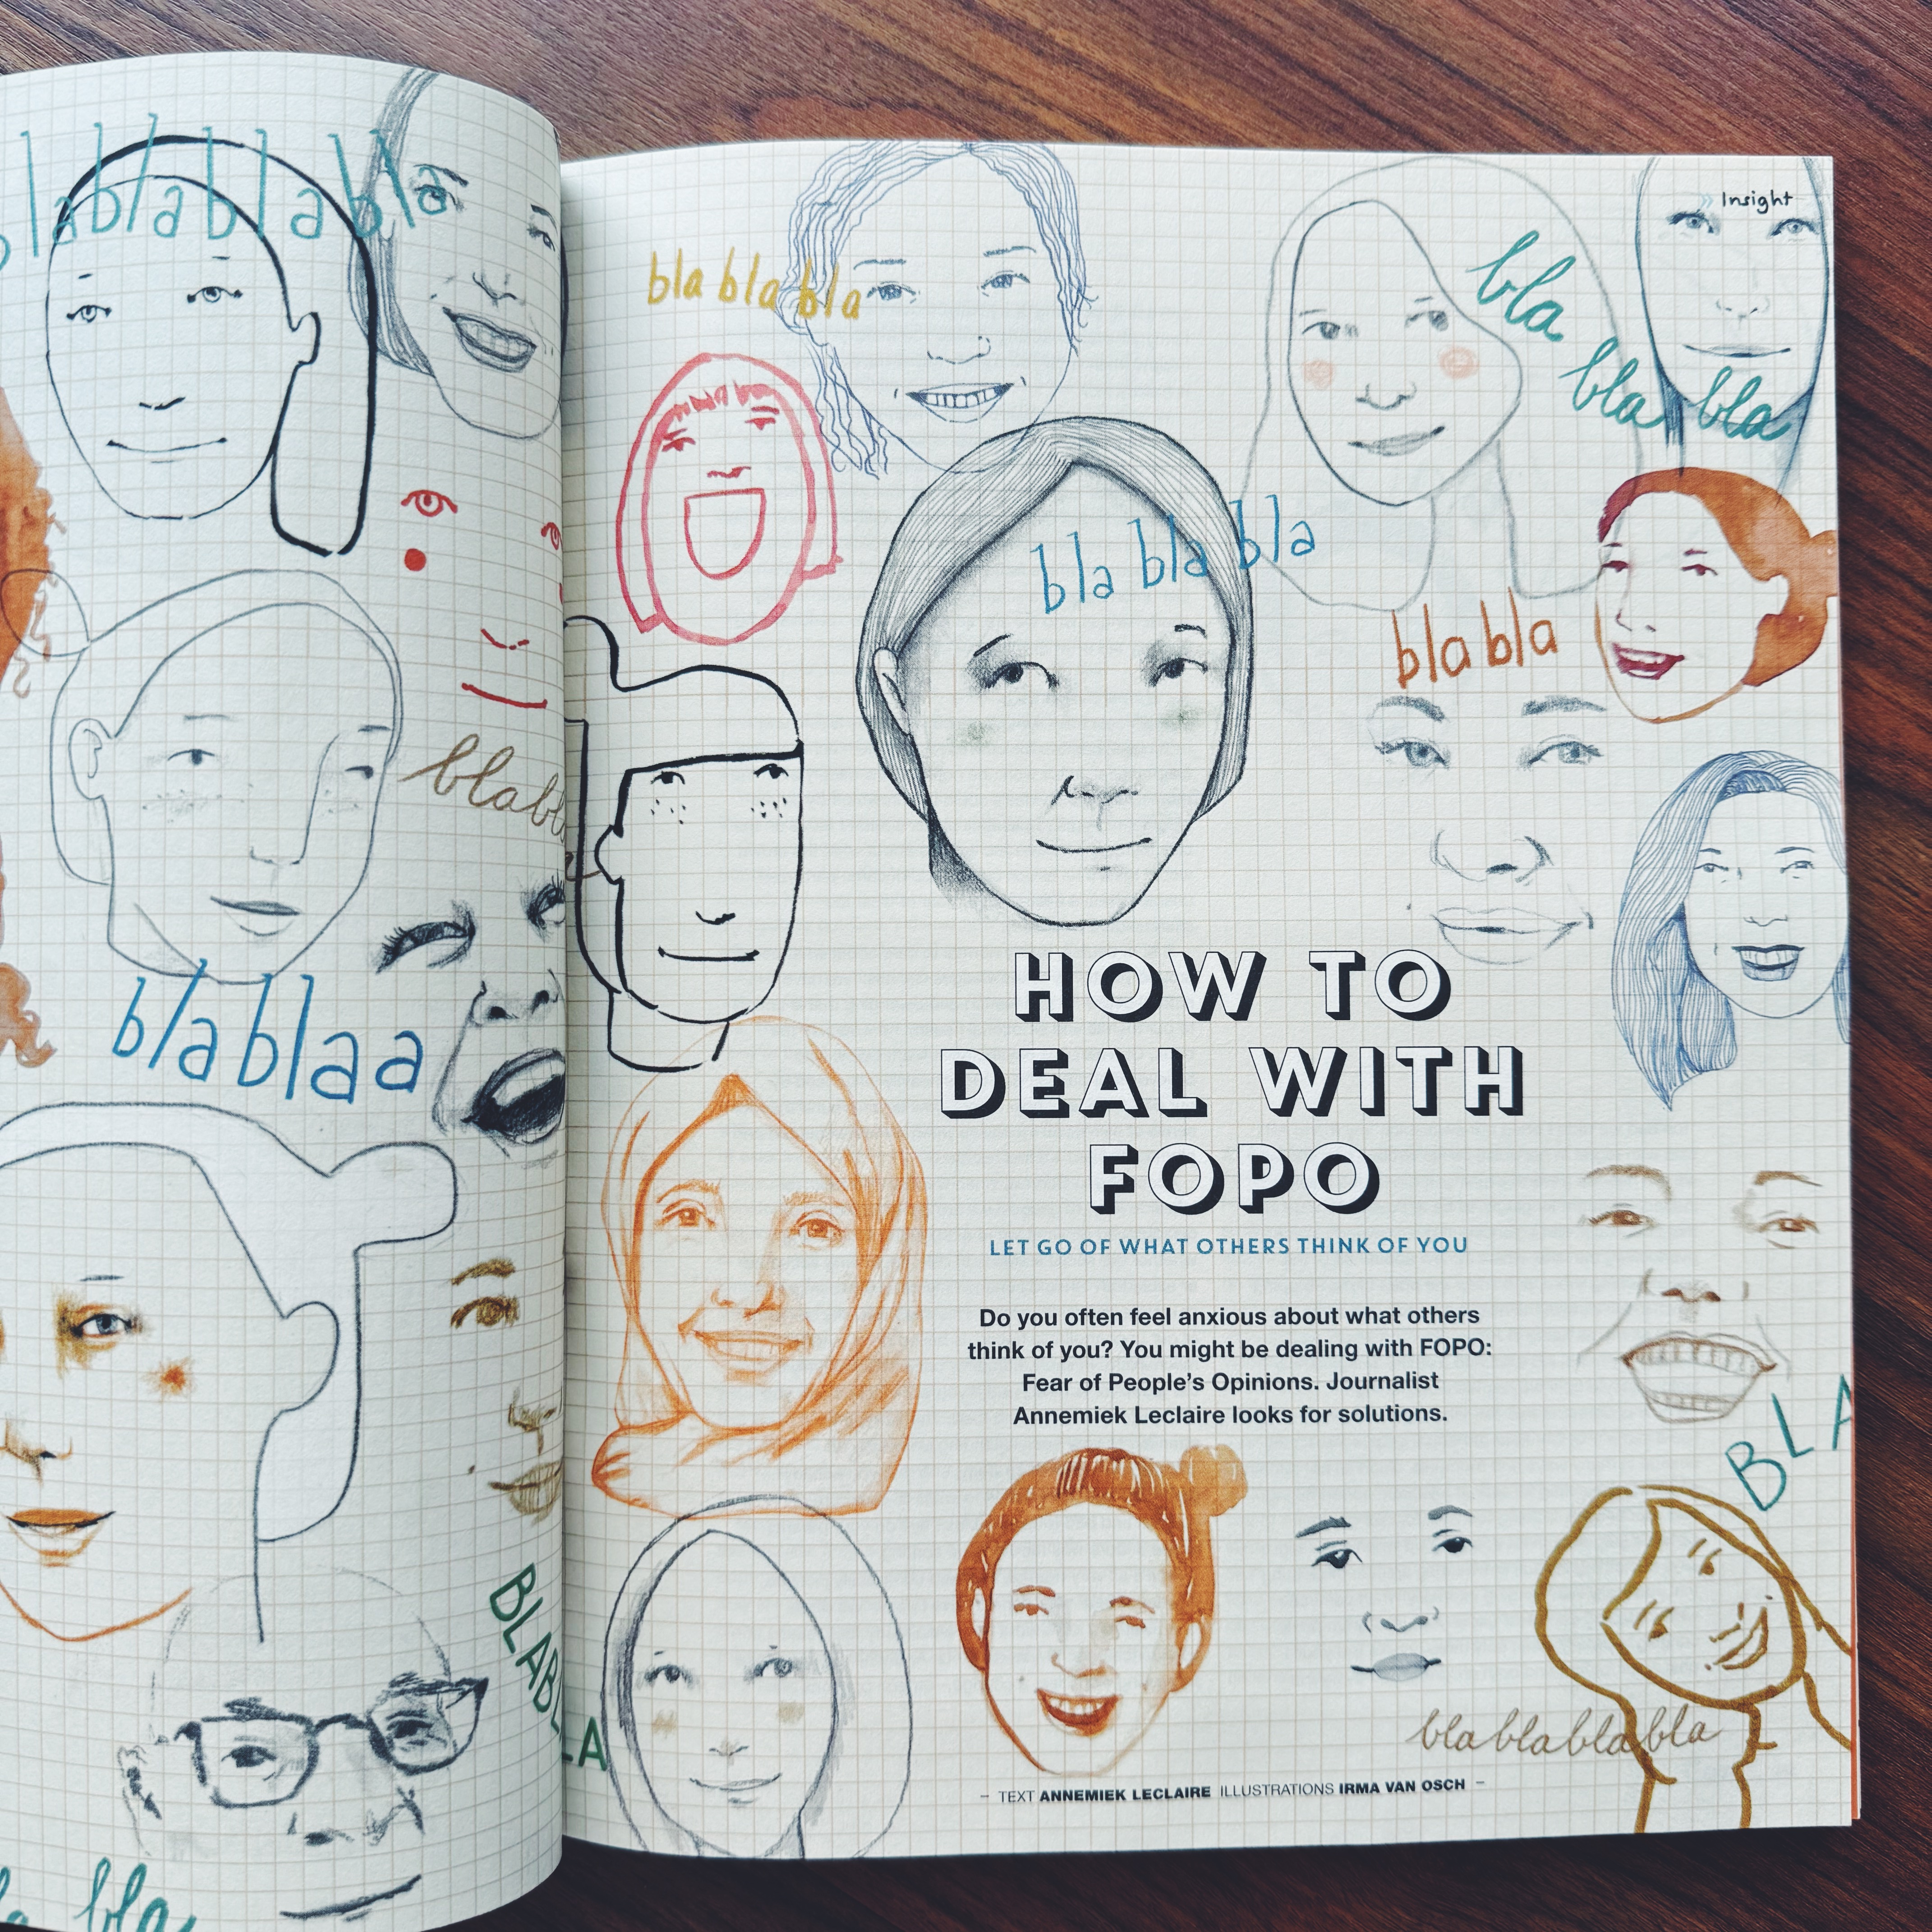 blablablabla
blabl
blablaa
BLABLA
bla
» Insight
bla bla bla
bla
bla bla
bla bla bla
bla bla
HOW TO
DEAL WITH
FOPO
LET GO OF WHAT OTHERS THINK OF YOU
Do you often feel anxious about what others
think of you? You might be dealing with FOPO:
Fear of People’s Opinions. Journalist
Annemiek Leclaire looks for solutions.
BLA
blablablabla
– TEXT ANNEMIEK LECLAIRE ILLUSTRATIONS IRMA VAN OSCH –